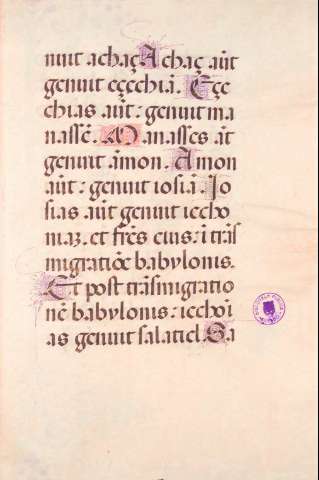 nuit achaç Achaç aūt
genuit eçechiā. Eçe
chias aūt: genuit ma
nassē. Manasses āt
genuit āmon. Amon
aūt: genuit iosiā. Jo
sias aūt genuit iecho
niaz. et frēs eius: ī trās
migratiōe babylonis.
Et post trāsmigratio
nē babylonis: iechoī
as genuit salatiel. Sa